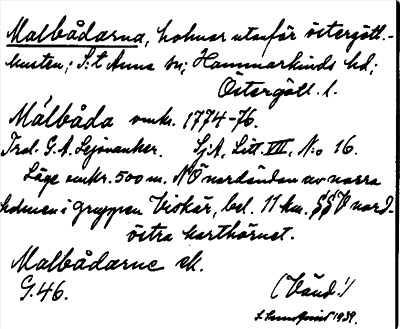 Malbådarna, holmar utanför östergötl.-
kusten; S:t Anna sn; Hammarkinds hd;
Östergötl. l.
Målbåda omkr. 1774-76.
Trol. G. A. Lejonanker. Sj.A, Litt. VIII, N:o 16.
Läge omkr. 500 m. NO nordändan av norra
holmen i gruppen Viskär, bel. 11 km. SSV nord-
östra karthörnet.
Malbådarne ek.
G.46. (Vänd!)
1939.